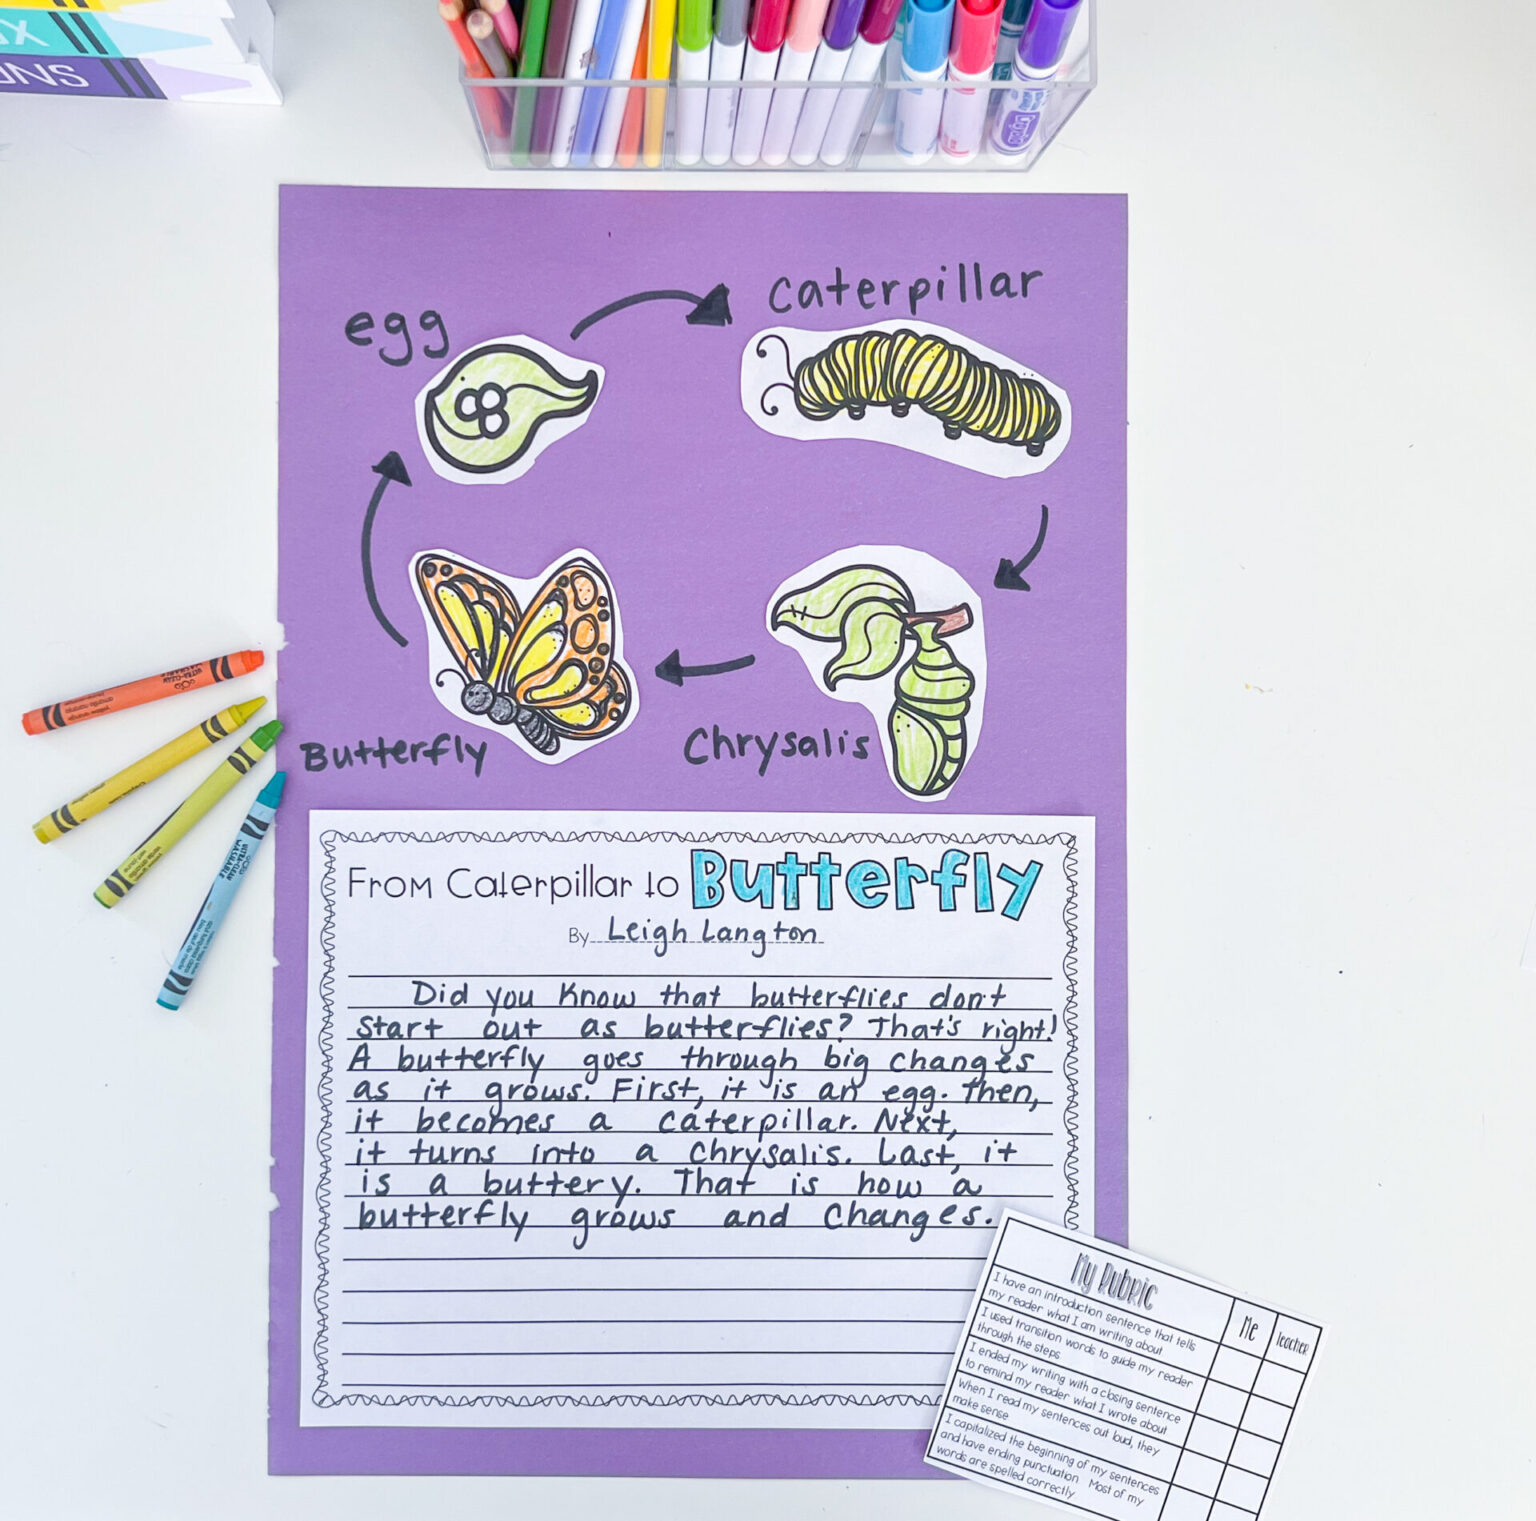 egg
caterpillar
Butterfly
Chrysalis
From Caterpillar to Butterfly
By Leigh Langton
Did you know that butterflies don't
start out as butterflies? That's right!
A butterfly goes through big changes
as it grows. First, it is an egg. Then,
it becomes a caterpillar. Next,
it turns into a chrysalis. Last, it
is a buttery. That is how a
butterfly grows and changes.
My Rubric
Me
Teacher
I have an introduction sentence that tells
my reader what I am writing about
I used transition words to guide my reader
through the steps
I ended my writing with a closing sentence
to remind my reader what I wrote about
When I read my sentences out loud, they
make sense
I capitalized the beginning of my sentences
and have ending punctuation Most of my
words are spelled correctly